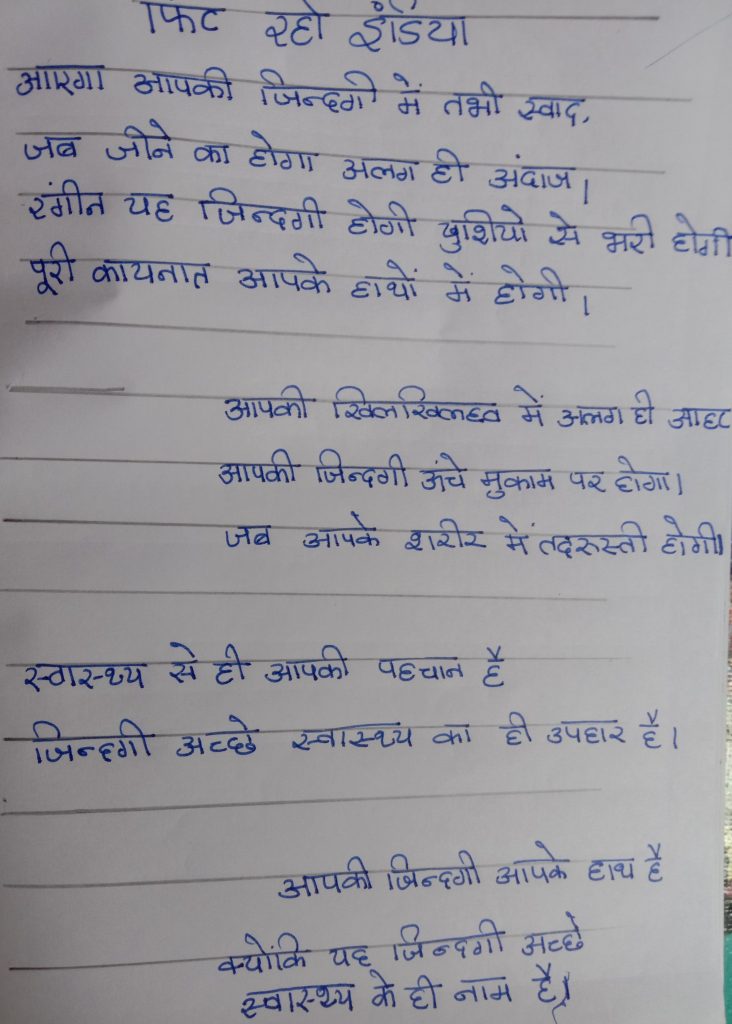 फिट रहो इंडिया
आएगा आपकी जिन्दगी में तभी स्वाद,
जब जीने का होगा अलग ही अंदाज।
रंगीन यह जिन्दगी होगी खुशियो से भरी होगी
पूरी कायनात आपके हाथों में होगी।
आपकी खिलखिलहट में अलग ही आहट
आपकी जिन्दगी ऊंचे मुकाम पर होगा।
जब आपके शरीर में तदरुस्ती होगी॥
स्वास्थ्य से ही आपकी पहचान है
जिन्दगी अच्छे स्वास्थ्य का ही उपहार है।
आपकी जिन्दगी आपके हाथ है
क्योंकि यह जिन्दगी अच्छे
स्वास्थ्य के ही नाम है।